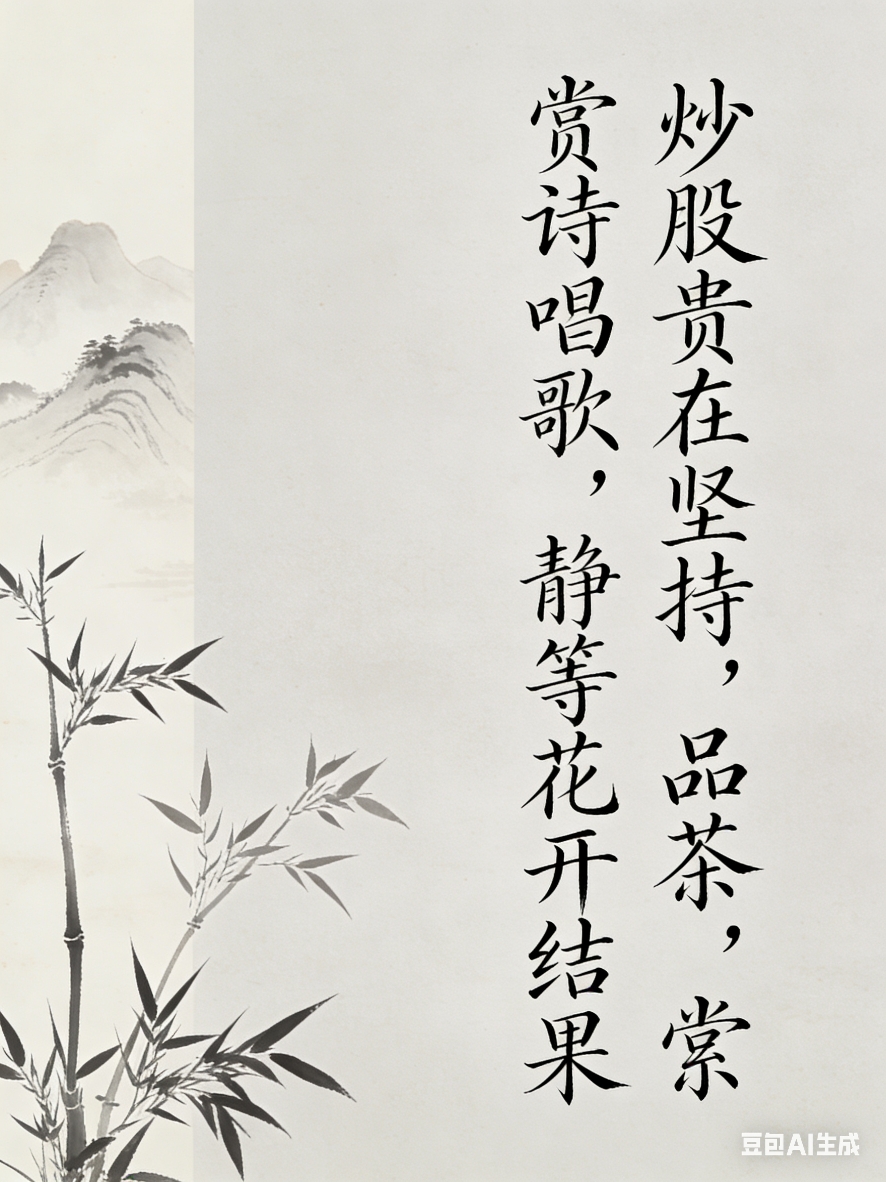 炒股贵在坚持，品茶，
赏诗唱歌，静等花开结果
豆包AI生成